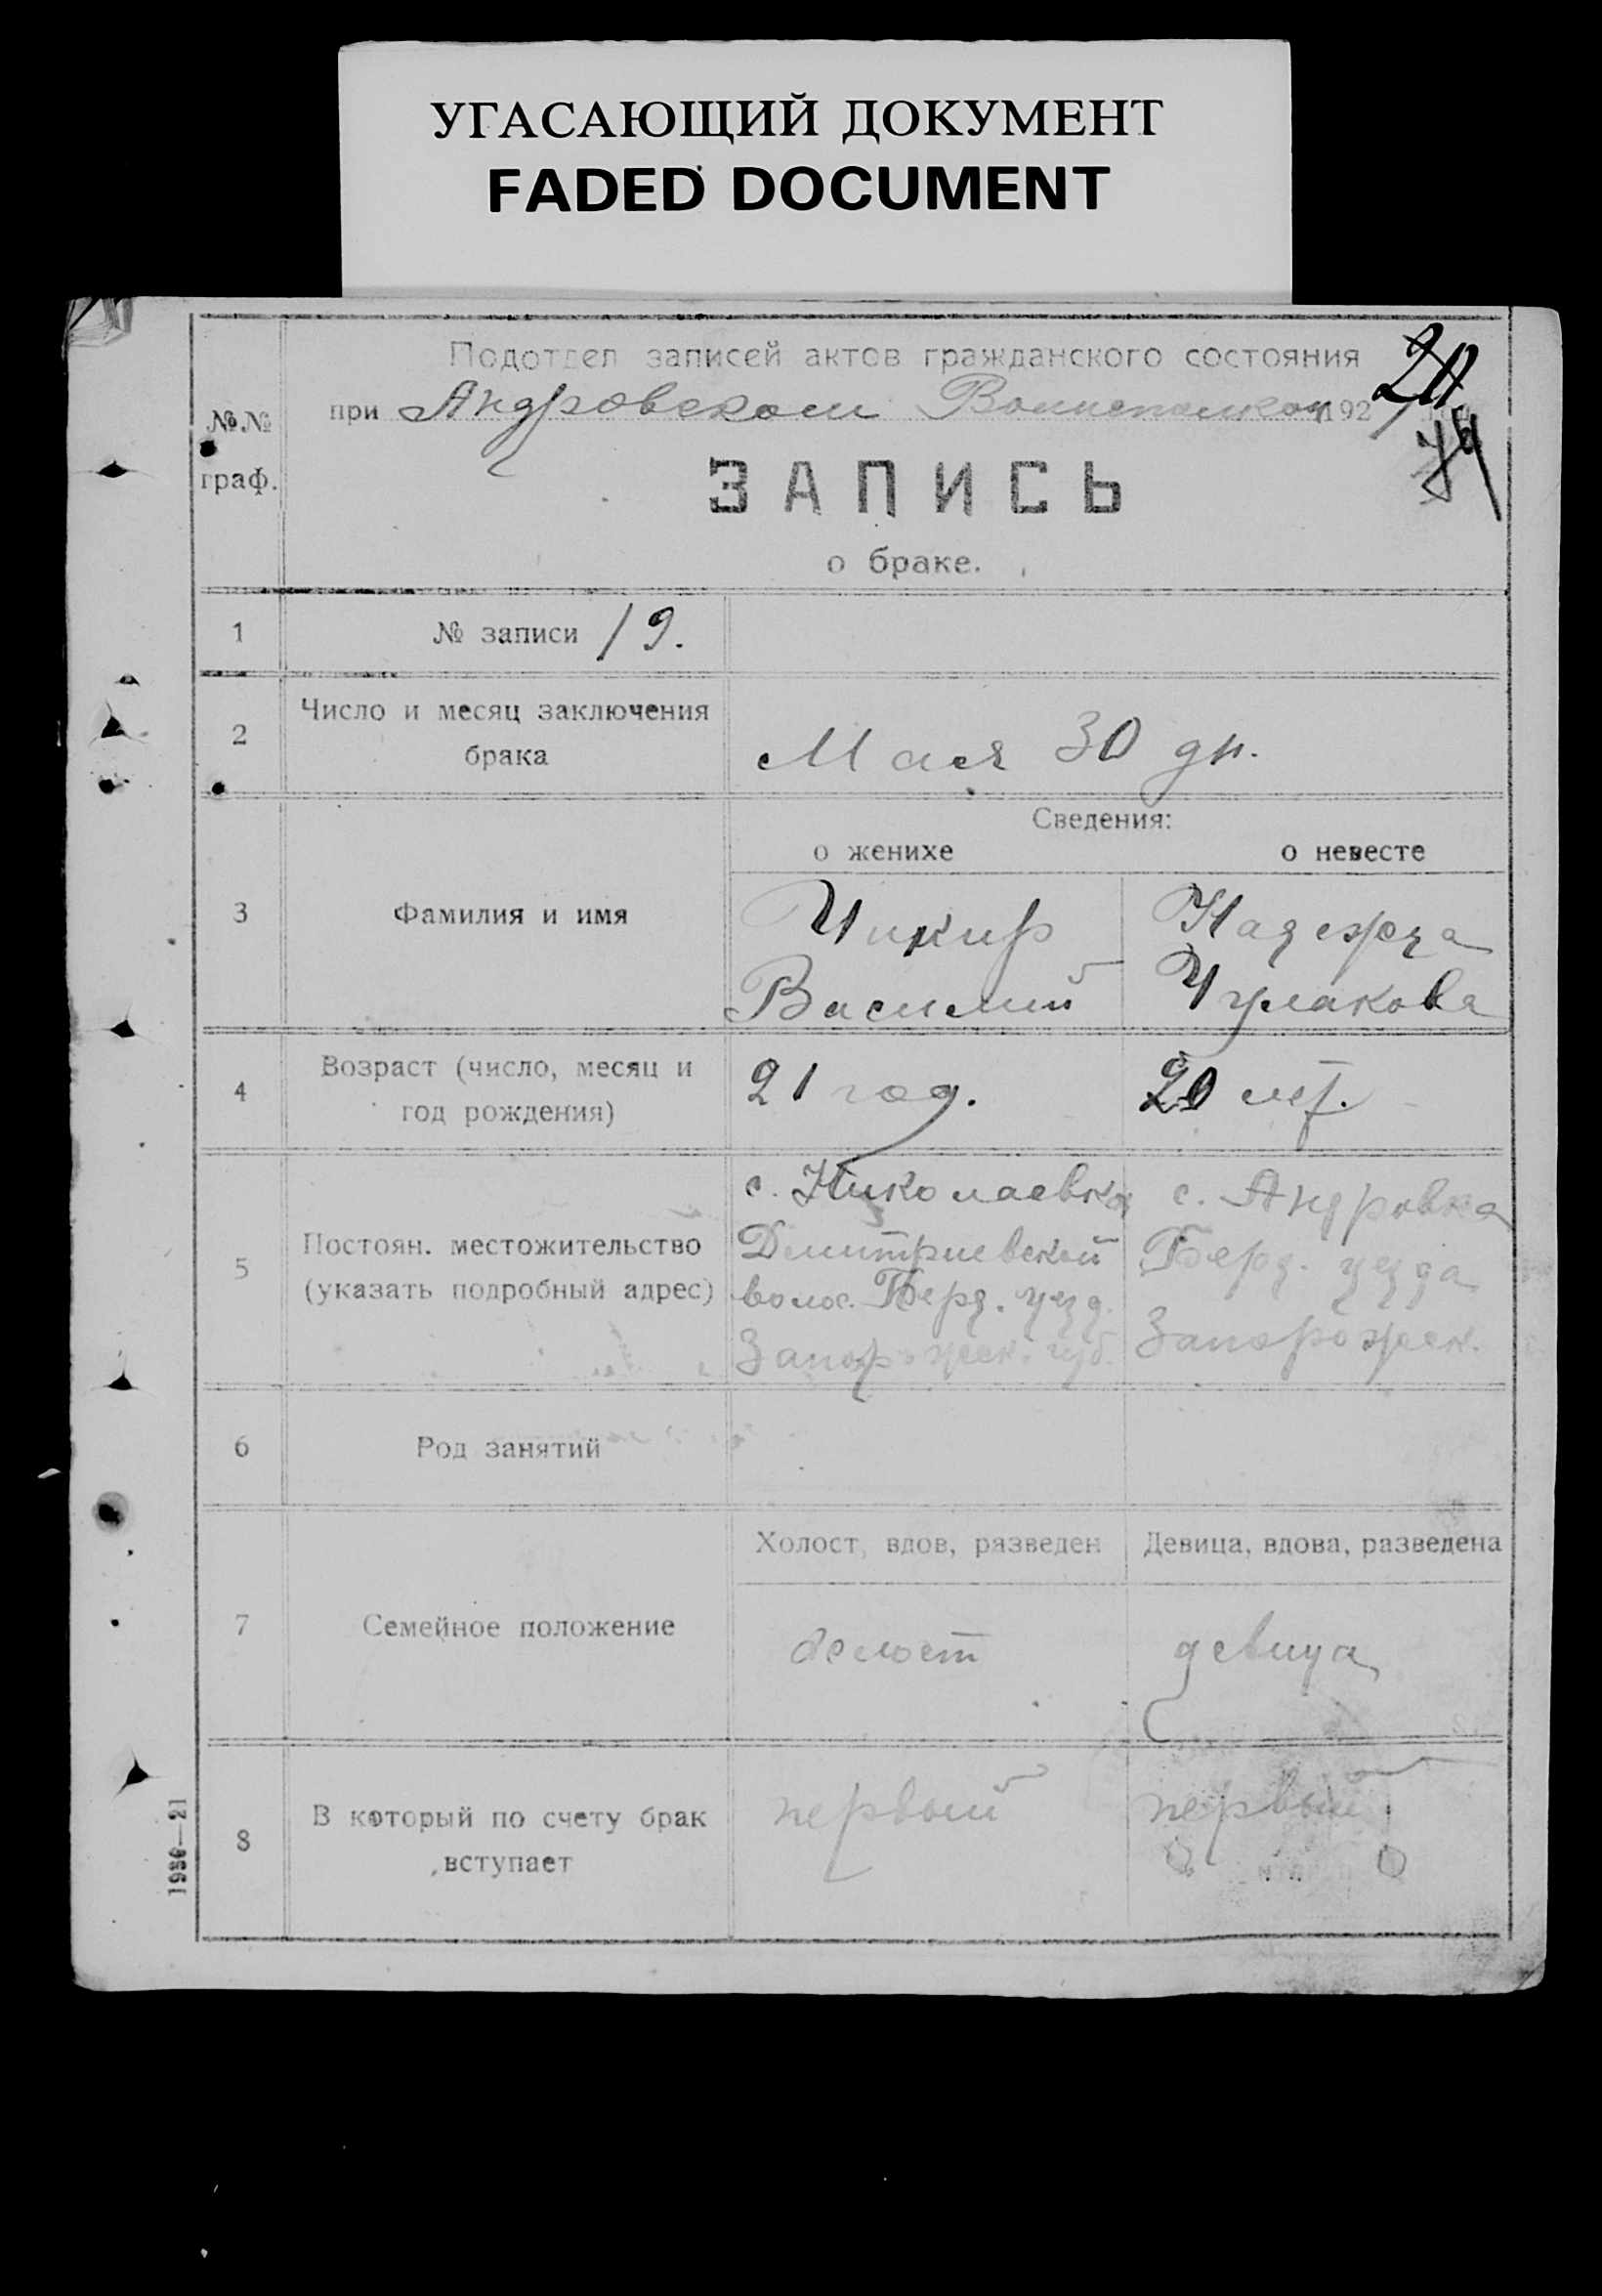 УГАСАЮЩИЙ ДОКУМЕНТ
FADED DOCUMENT
Подотдел записей актов гражданского состояния
при Андровском 192
№№
граф.
ЗАПИСЬ
о браке.
1
№ записи 19.
2
Число и месяц заключения
брака
Мая 30 дн.
Сведения:
о женихе
о невесте
3
Фамилия и имя
Чикир
Василий
Надежда
Чулакова
4
Возраст (число, месяц и
год рождения)
21 год.
20 лет.
5
Постоян. местожительство
(указать подробный адрес)
с. Николаевка
Димитриевской
волос. Берд. уезд.
Запорожск. губ.
с. Андровка
Берд. уезда
Запорожск.
6
Род занятий
7
Семейное положение
Холост, вдов, разведен
Девица, вдова, разведена
холост
девица
8
В который по счету брак
вступает
первый
первый